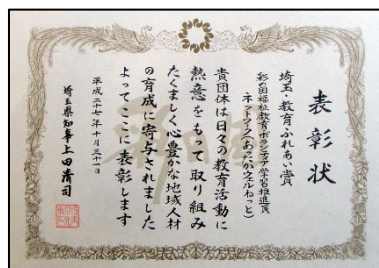 表彰状
埼玉・教育ふれあい賞
彩の国福祉教育・ボランティア学習推進員
ネットワーク(あったかウェルねっと)
貴団体は日々の教育活動に
熱意をもって取り組み
たくましく心豊かな地域人材
の育成に寄与されました
よってここに表彰します
平成二十七年十月三十一日
埼玉県知事上田清司